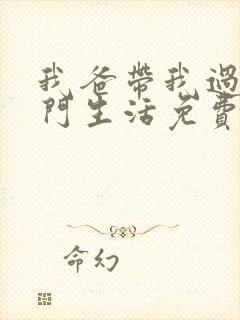 我爸帶我過
門生活免費
命幻